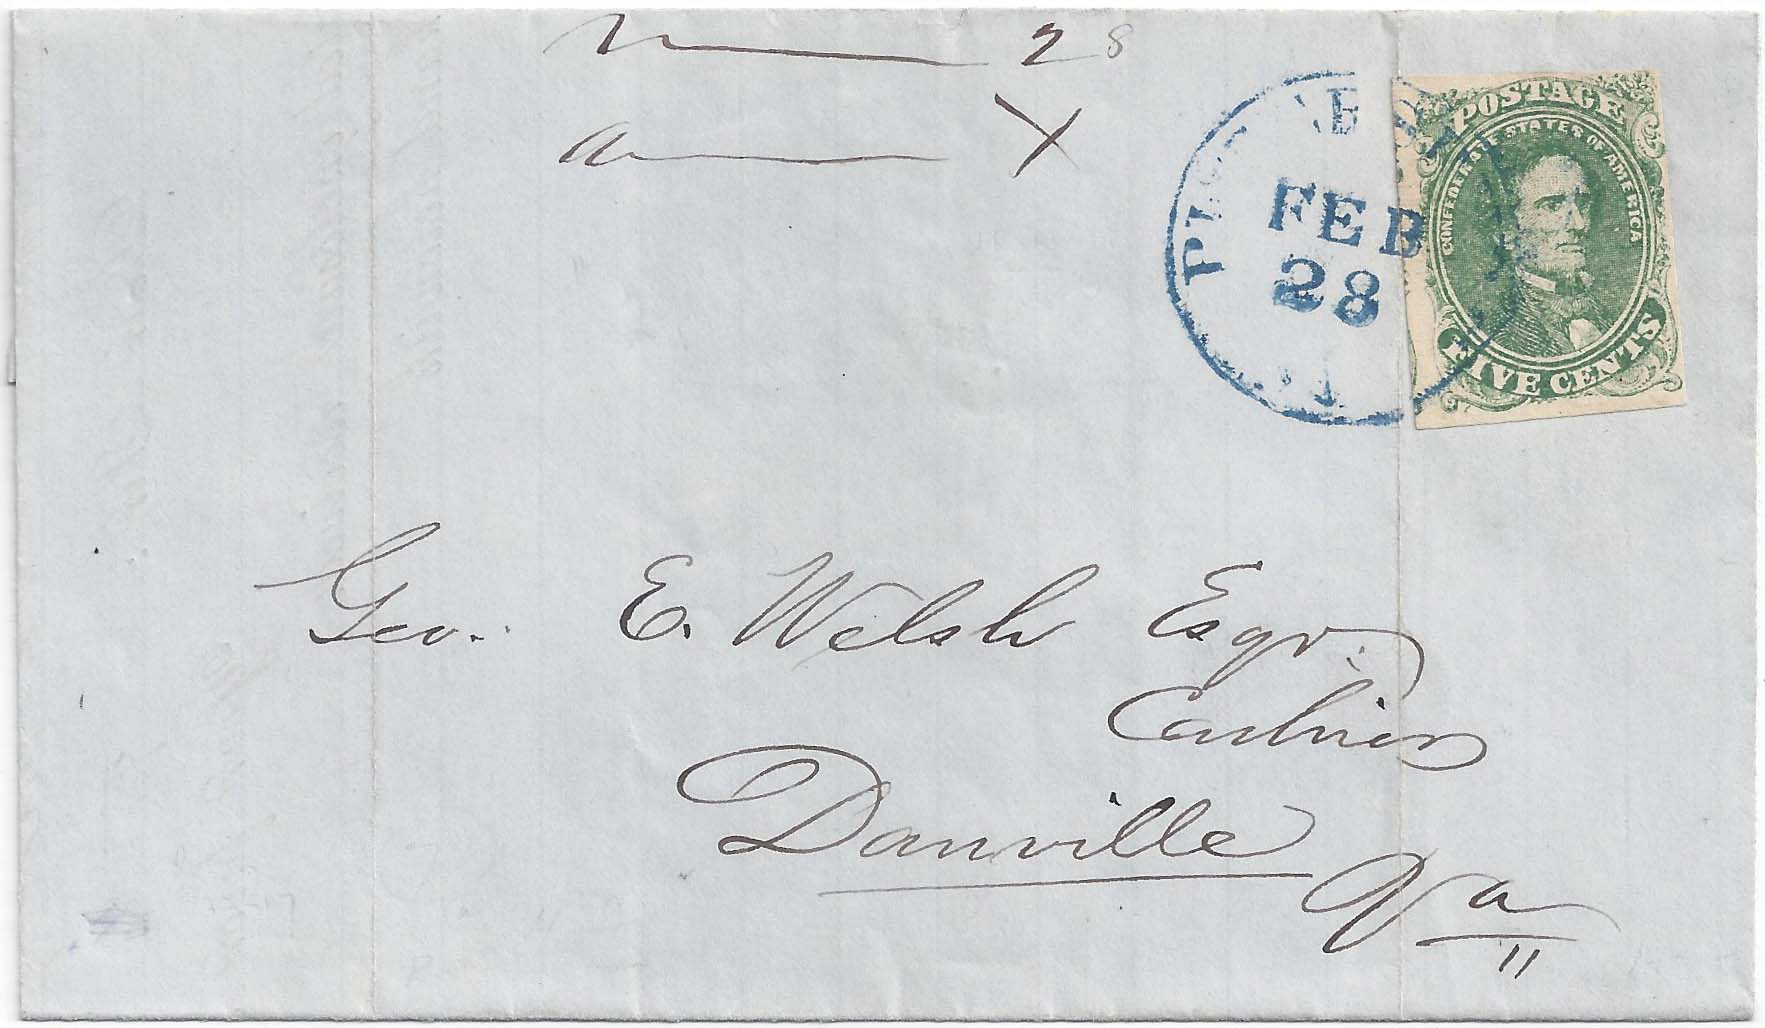 28
X
FEB
28
POSTAGE
CONFEDERATE STATES OF AMERICA
FIVE CENTS
Geo. E. Welsh Esqr.
Danville
Va